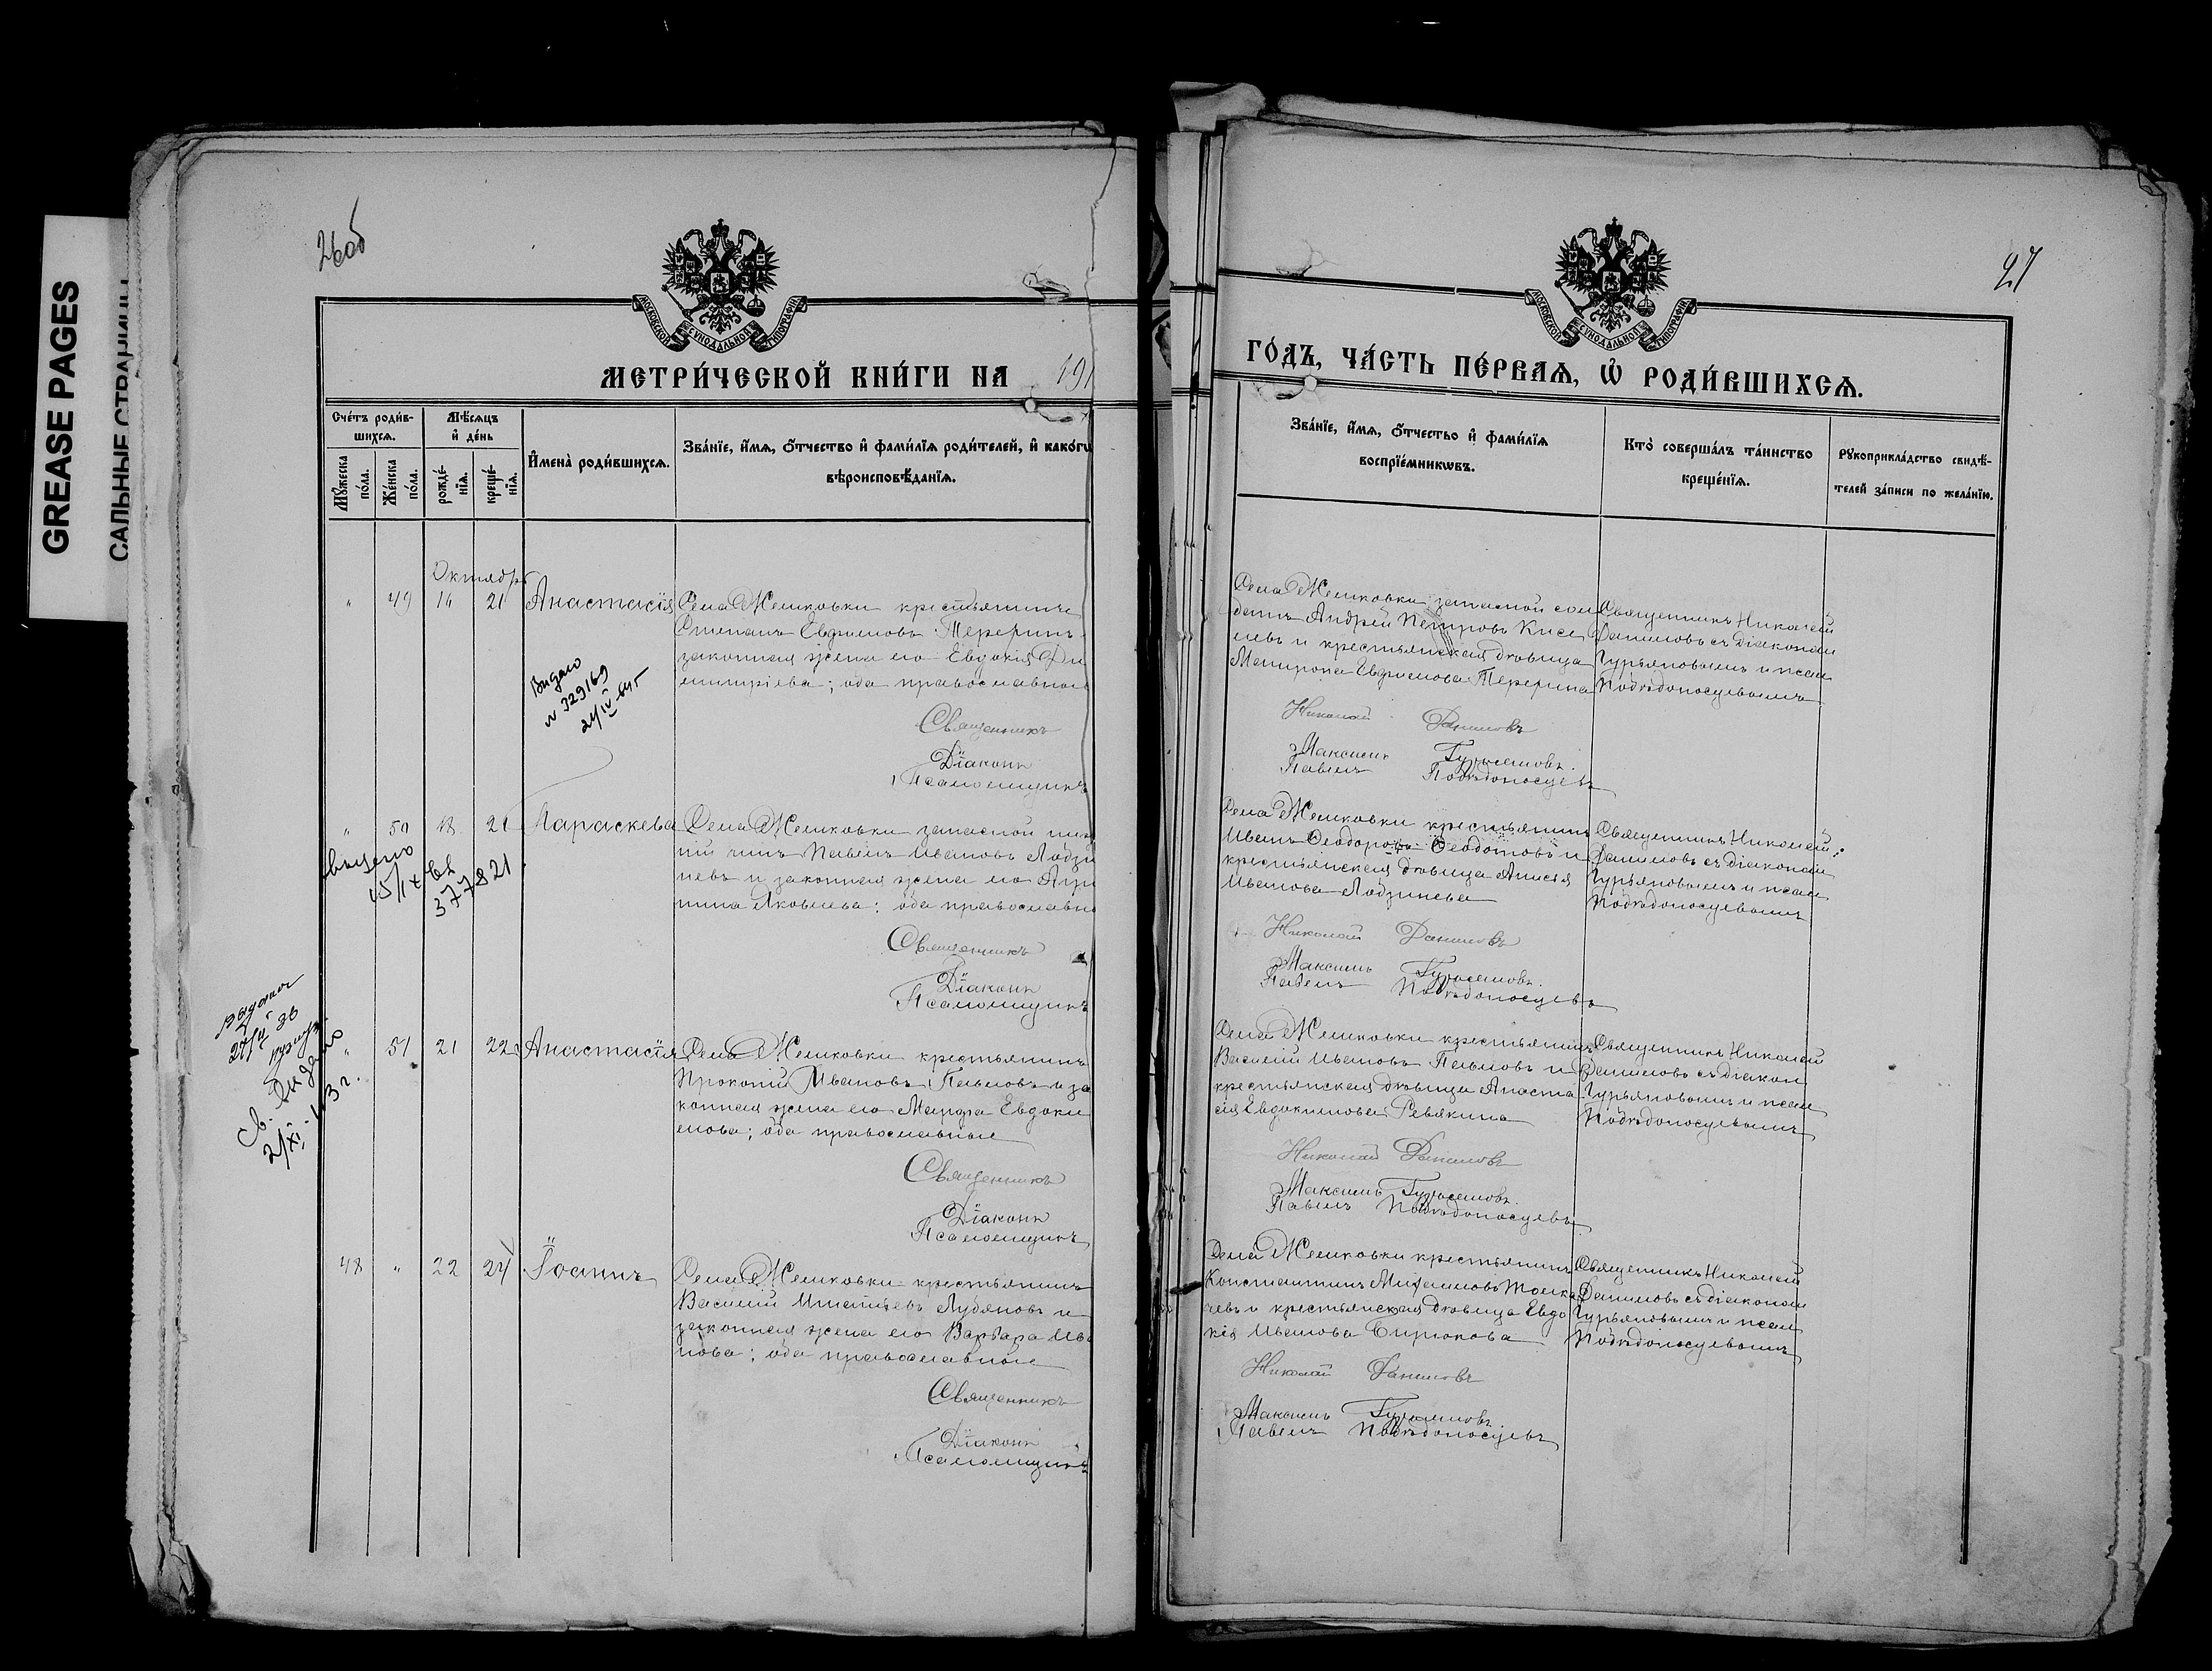 GREASE PAGES
САЛЬНЫЕ СТРАНИЦЫ
26об
МОСКОВСКОЙ СѴНОДАЛЬНОЙ ТИПОГРАФІИ
МЕТРИ́ЧЕСКОЙ КНИ́ГИ НА 191
Сче́тъ роди́в-
шихсѧ.
Мѣ́сѧцъ
и҆ де́нь
Мꙋ́жеска
по́ла.
Же́нска
по́ла.
рожде́-
нїѧ.
креще́-
нїѧ.
И҆мена̀ роди́вшихсѧ.
Зва́нїе, и҆́мѧ, ѻ҆́тчество и҆ фами́лїѧ роди́телей, и҆ како́гѡ
вѣроисповѣ́данїѧ.
Октябрь
" 49 16 21 Анастасія
Села Мешковки крестьянинъ
Стефанъ Евфимовъ Тереринъ
законная жена его Евдокія Ди
митріева; оба православные
Выдано
N 329169
21/IV
Священникъ
Діаконъ
Псаломщикъ
" 50 18 21 Параскева
Села Мешковки запасной
чинъ Павелъ Ивановъ Лодзи
невъ и законная жена его Агри
пина Яковлева; оба православн
выдено
15/IX
377821
Священникъ
Діаконъ
Псаломщикъ
" 51 21 22 Анастасія
Села Мешковки крестьянинъ
Прокопій Ивановъ Павловъ и за
конная жена его Марфа Евдоки
мова; оба православные
Св. выдано
2/XI
Священникъ
Діаконъ
Псаломщикъ
48 " 22 24 Іоаннъ
Села Мешковки крестьянинъ
Василій Игнатьевъ Лубяновъ и
законная жена его Варвара Ива
нова; оба православные
Священникъ
Діаконъ
Псаломщикъ
27
МОСКОВСКОЙ СѴНОДАЛЬНОЙ ТИПОГРАФІИ
ГО́ДЪ, ЧА́СТЬ ПЕ́РВАѦ, Ѡ҆ РОДИ́ВШИХСѦ.
Зва́нїе, и҆́мѧ, ѻ҆́тчество и҆ фами́лїѧ
воспрїе́мникѡвъ.
Кто̀ соверша́лъ та́инство
креще́нїѧ.
Рꙋкоприкла́дство свидѣ́-
телей за́писи по жела́нїю.
Села Мешковки запасной сол
датъ Андрей Петровъ Кисе
левъ и крестьянская дѣвица
Матрона Евфимова Терерина
Священникъ Николай
Даниловъ съ діаконом
Гурьяновымъ и псал
Побѣдоносцевымъ
Николай Даниловъ
Максимъ Гурьяновъ.
Павелъ Побѣдоносцевъ
Села Мешковки крестьянинъ
Иванъ Ѳеодоровъ Ѳедотовъ и
крестьянская дѣвица Анисія
Иванова Лодзинева
Священникъ Николай
Даниловъ съ діаконом
Гурьяновымъ и псал
Побѣдоносцевымъ
Николай Даниловъ
Максимъ Гурьяновъ.
Павелъ Побѣдоносцевъ
Села Мешковки крестьянинъ
Василій Ивановъ Павловъ и
крестьянская дѣвица Анаста
сія Евдокимова Ревякина
Священникъ Николай
Даниловъ съ діакон
Гурьяновымъ и псал
Побѣдоносцевымъ
Николай Даниловъ
Максимъ Гурьяновъ.
Павелъ Побѣдоносцевъ
Села Мешковки крестьянинъ
Константинъ Михаиловъ Толка
чевъ и крестьянская дѣвица Евдо
кія Иванова Бирюкова
Священникъ Николай
Даниловъ съ діаконом
Гурьяновымъ и псал
Побѣдоносцевымъ
Николай Даниловъ
Максимъ Гурьяновъ.
Павелъ Побѣдоносцевъ